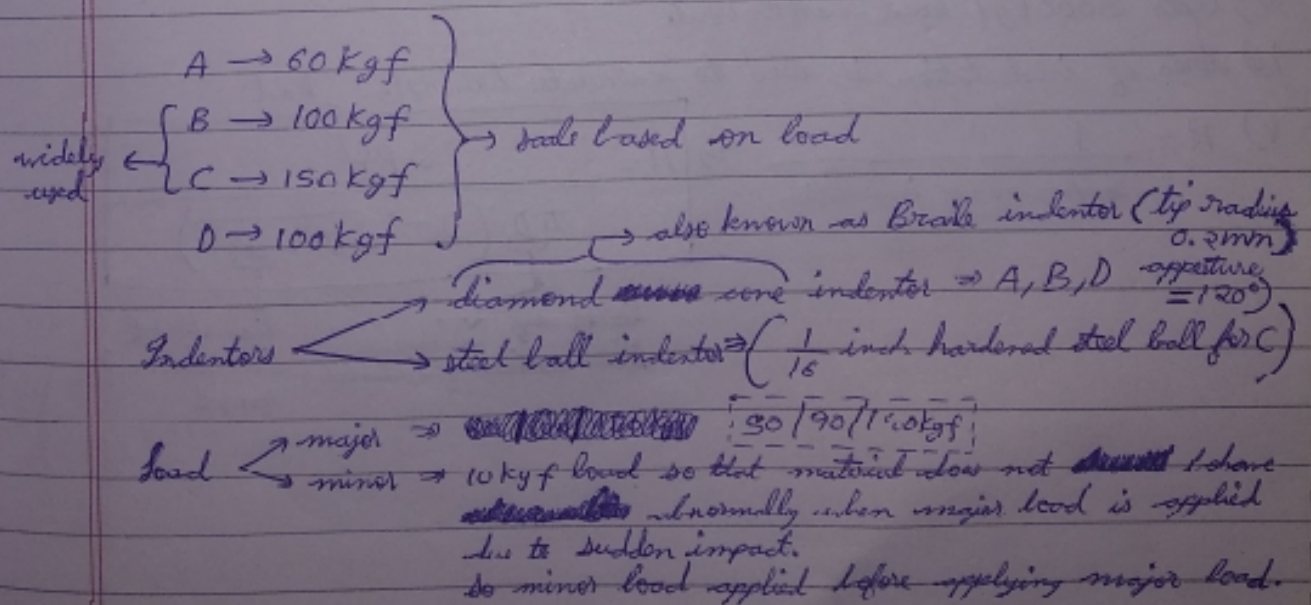 A → 60 Kgf
B → 100 Kgf
widely used
C → 150 Kgf
→ scale based on load
D → 100 Kgf
→ also known as Braile indentor (tip radius 0.2mm)
diamond cone indentor ⇒ A, B, D apperture = 120°)
Indentors
steel ball indentor ⇒ (1/16 inch hardened steel ball for C)
Load
major ⇒ 50/90/140kgf
minor ⇒ 10 kgf load so that material does not behave
abnormally when major load is applied
due to sudden impact.
so minor load applied before applying major load.